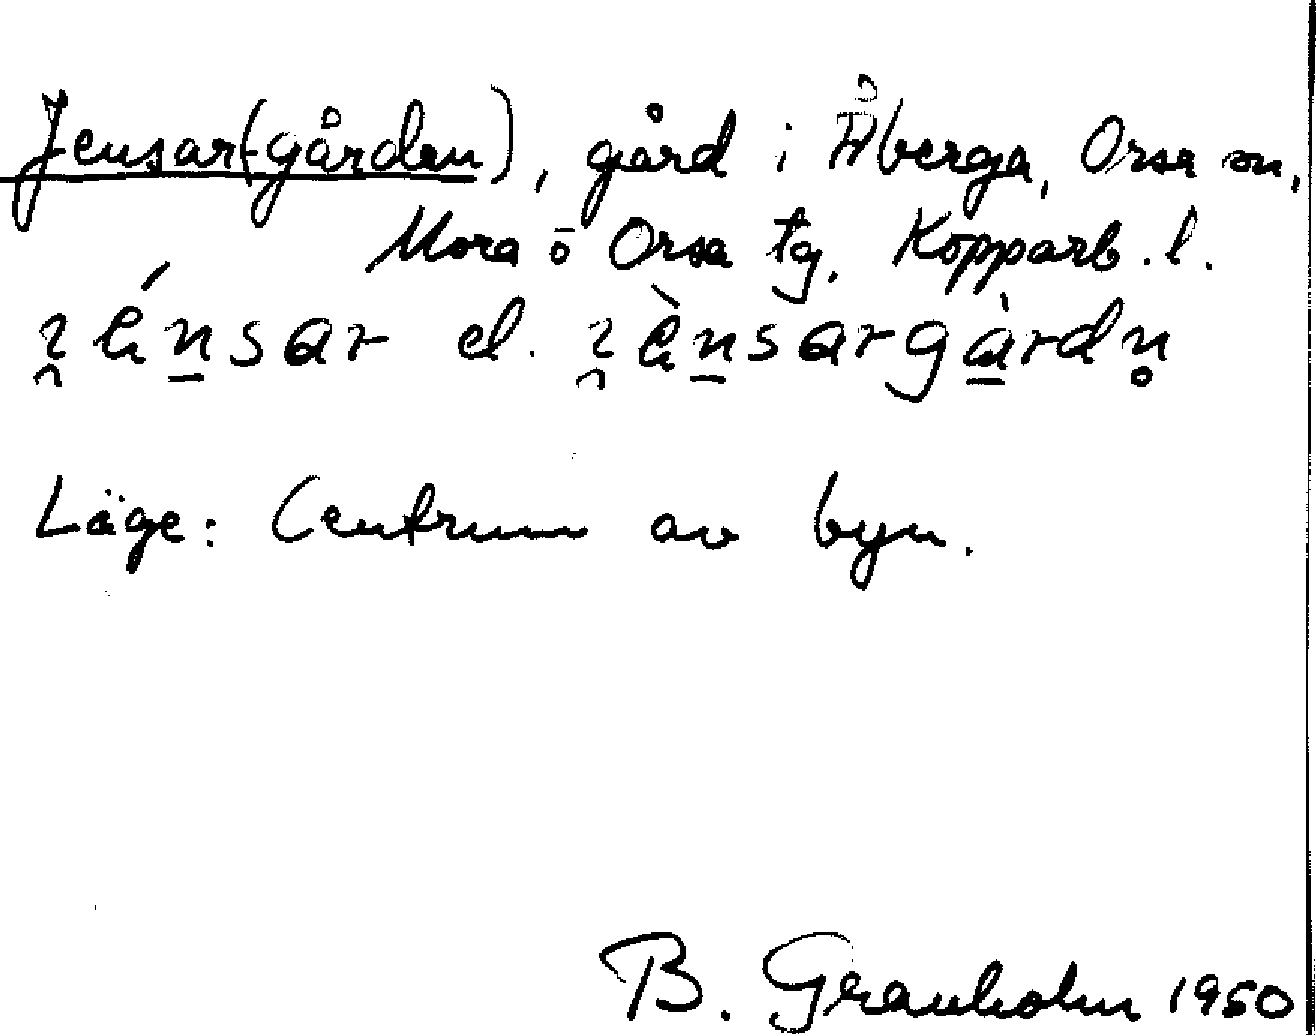 Jensar(-gården), gård i Åberga, Orsa sn,
Mora o Orsa tg. Kopparb. l.
el.
Läge: Centrum av byn.
B. Granholm 1950